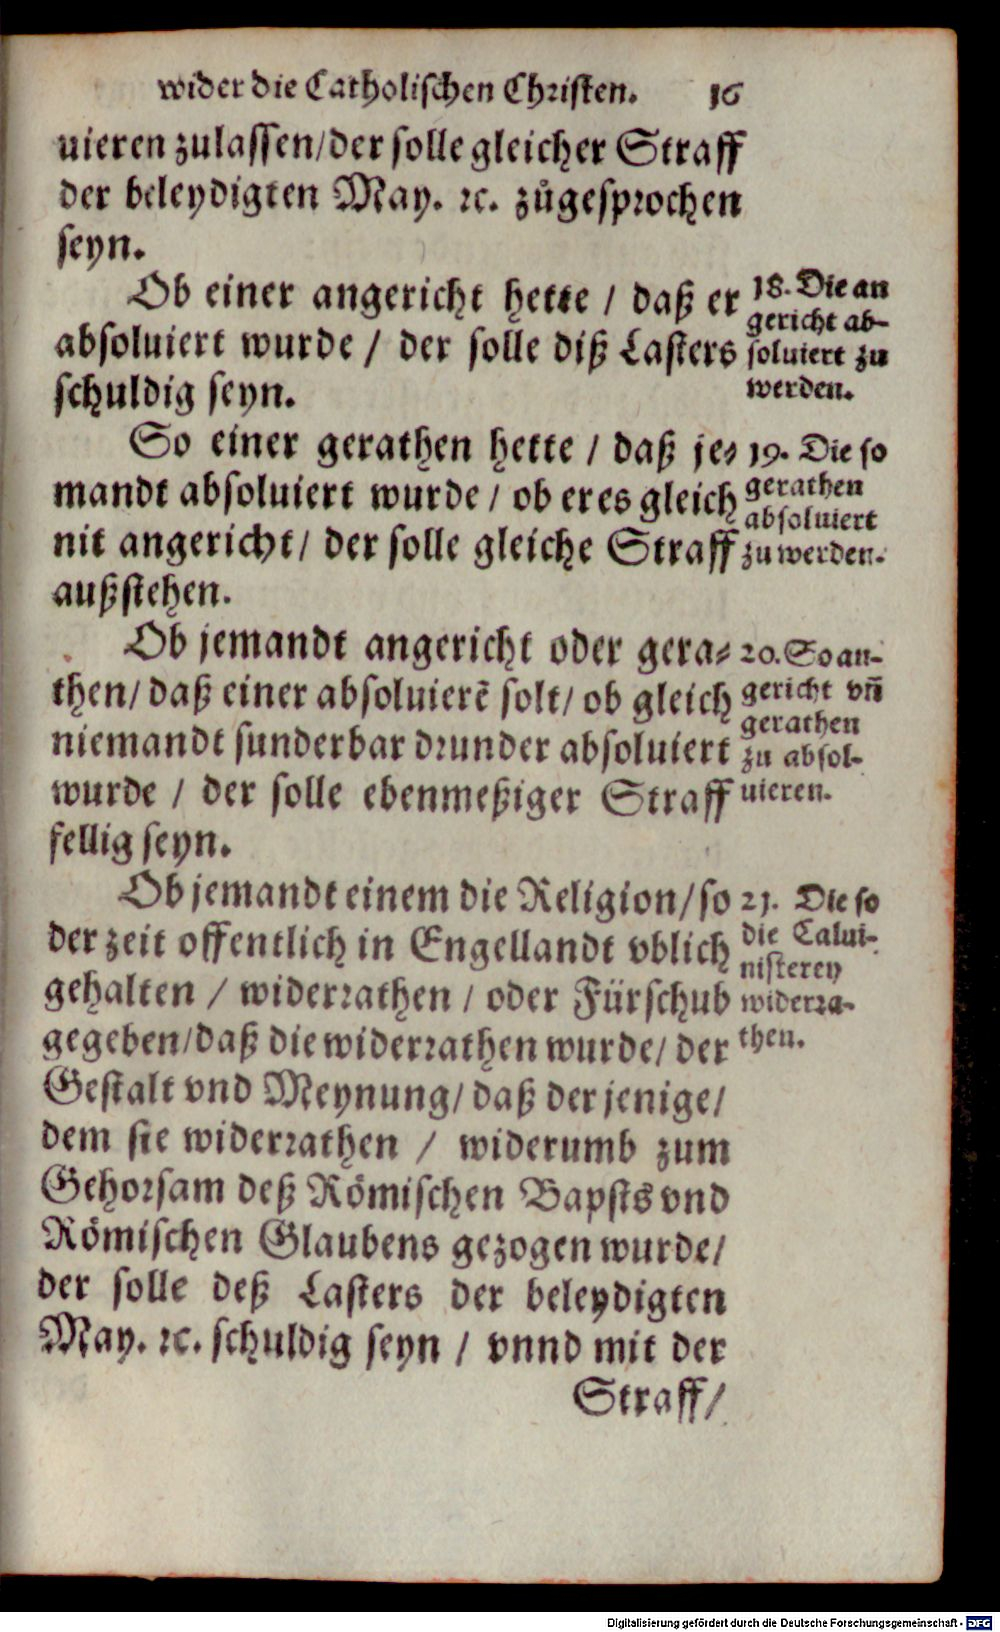 wider die Catholischen Christen. 16
uieren zulassen/der solle gleicher Straff
der beleydigten May. ꝛc. zůgesprochen
seyn.
Ob einer angericht hette / daß er
absoluiert wurde / der solle diß Lasters
schuldig seyn.
18. Die an
gericht ab-
soluiert zu
werden.
So einer gerathen hette / daß je-
mandt absoluiert wurde / ob er es gleich
nit angericht / der solle gleiche Straff
außstehen.
19. Die so
gerathen
absoluiert
zu werden.
Ob jemandt angericht oder gera-
then/ daß einer absoluierẽ solt/ ob gleich
niemandt sunderbar drunder absoluiert
wurde / der solle ebenmeßiger Straff
fellig seyn.
20. So an-
gericht vñ
gerathen
zu absol-
uieren.
Ob jemandt einem die Religion/ so
der zeit offentlich in Engellandt vblich
gehalten / widerrathen / oder Fürschub
gegeben/daß die widerrathen wurde/ der
Gestalt vnd Meynung/ daß der jenige/
dem sie widerrathen / widerumb zum
Gehorsam deß Römischen Bapsts vnd
Römischen Glaubens gezogen wurde/
der solle deß Lasters der beleydigten
May. ꝛc. schuldig seyn / vnnd mit der
Straff/
21. Die so
die Calui-
nisterey
widerra-
then.
Digitalisierung gefördert durch die Deutsche Forschungsgemeinschaft - DFG